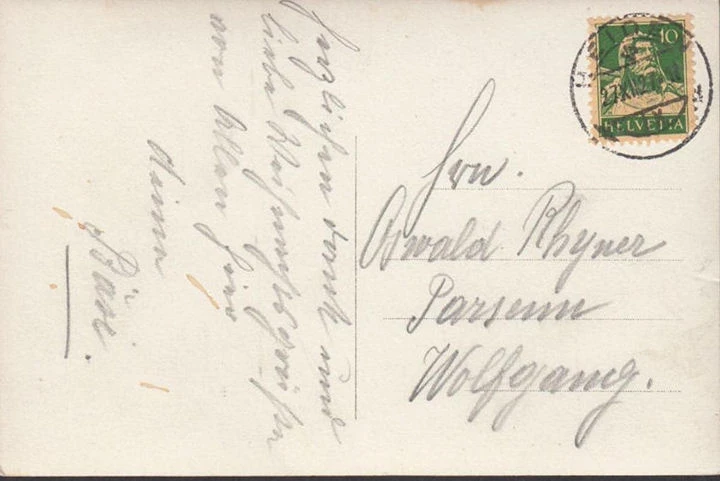 Herzlichen Dank und
liebe Weihnachtsgrüsse
von Allen hier
deine
Bäsi.
10
HELVETIA
Hrn.
Oswald Rhyner
Parsenn
Wolfgang.